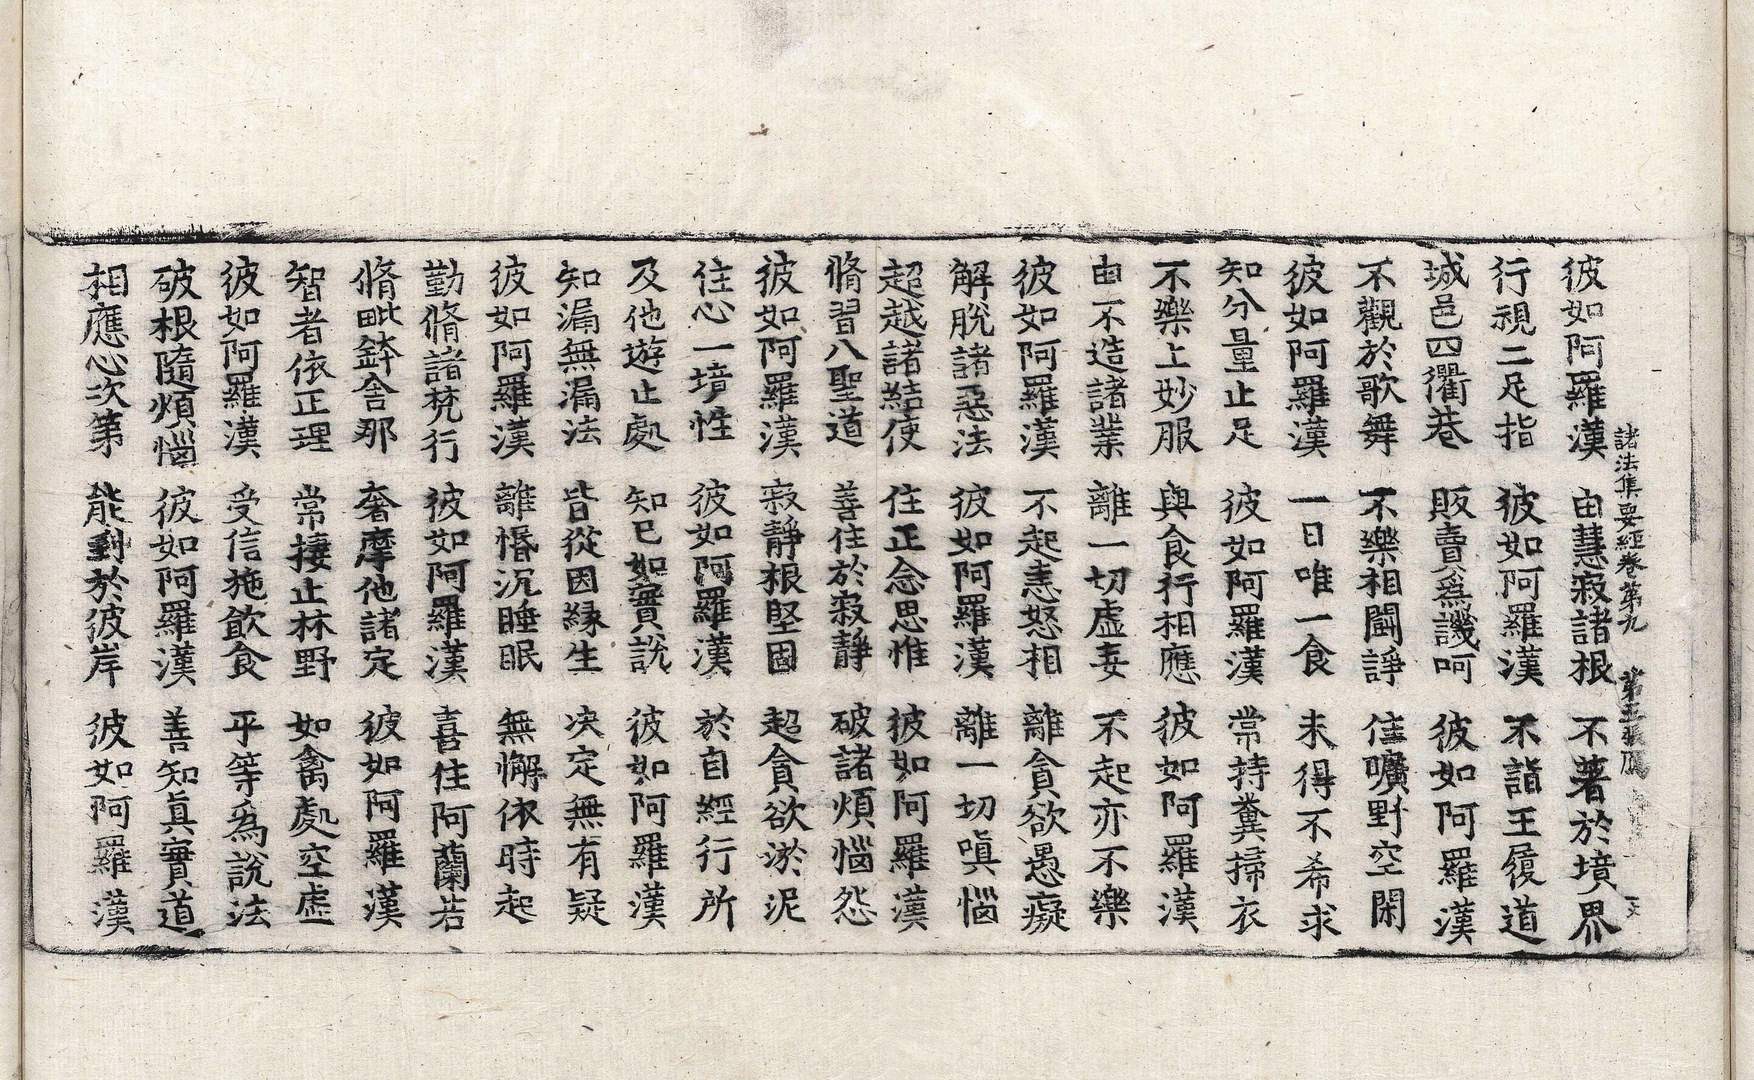 諸法集要經卷第九 第五張 鴈
彼如阿羅漢 由慧寂諸根 不著於境界
行視二足指 彼如阿羅漢 不詣王履道
城邑四衢巷 販賣爲譏呵 彼如阿羅漢
不觀於歌舞 不樂相鬪諍 住曠野空閑
彼如阿羅漢 一日唯一食 未得不希求
知分量止足 彼如阿羅漢 常持糞掃衣
不樂上妙服 與食行相應 彼如阿羅漢
由不造諸業 離一切虛妄 不起亦不樂
彼如阿羅漢 不起恚怒相 離貪欲愚癡
解脫諸惡法 彼如阿羅漢 離一切嗔惱
超越諸結使 住正念思惟 彼如阿羅漢
脩習八聖道 善住於寂靜 破諸煩惱怨
彼如阿羅漢 寂靜根堅固 超貪欲淤泥
住心一境性 彼如阿羅漢 於自經行所
及他遊止處 知已如實說 彼如阿羅漢
知漏無漏法 皆從因緣生 決定無有疑
彼如阿羅漢 離惛沉睡眠 無懈依時起
勤脩諸梵行 彼如阿羅漢 喜住阿蘭若
脩毗鉢舍那 奢摩他諸定 彼如阿羅漢
智者依正理 常捿止林野 如禽處空虛
彼如阿羅漢 受信施飲食 平等爲說法
破根隨煩惱 彼如阿羅漢 善知眞實道
相應心次第 能到於彼岸 彼如阿羅漢